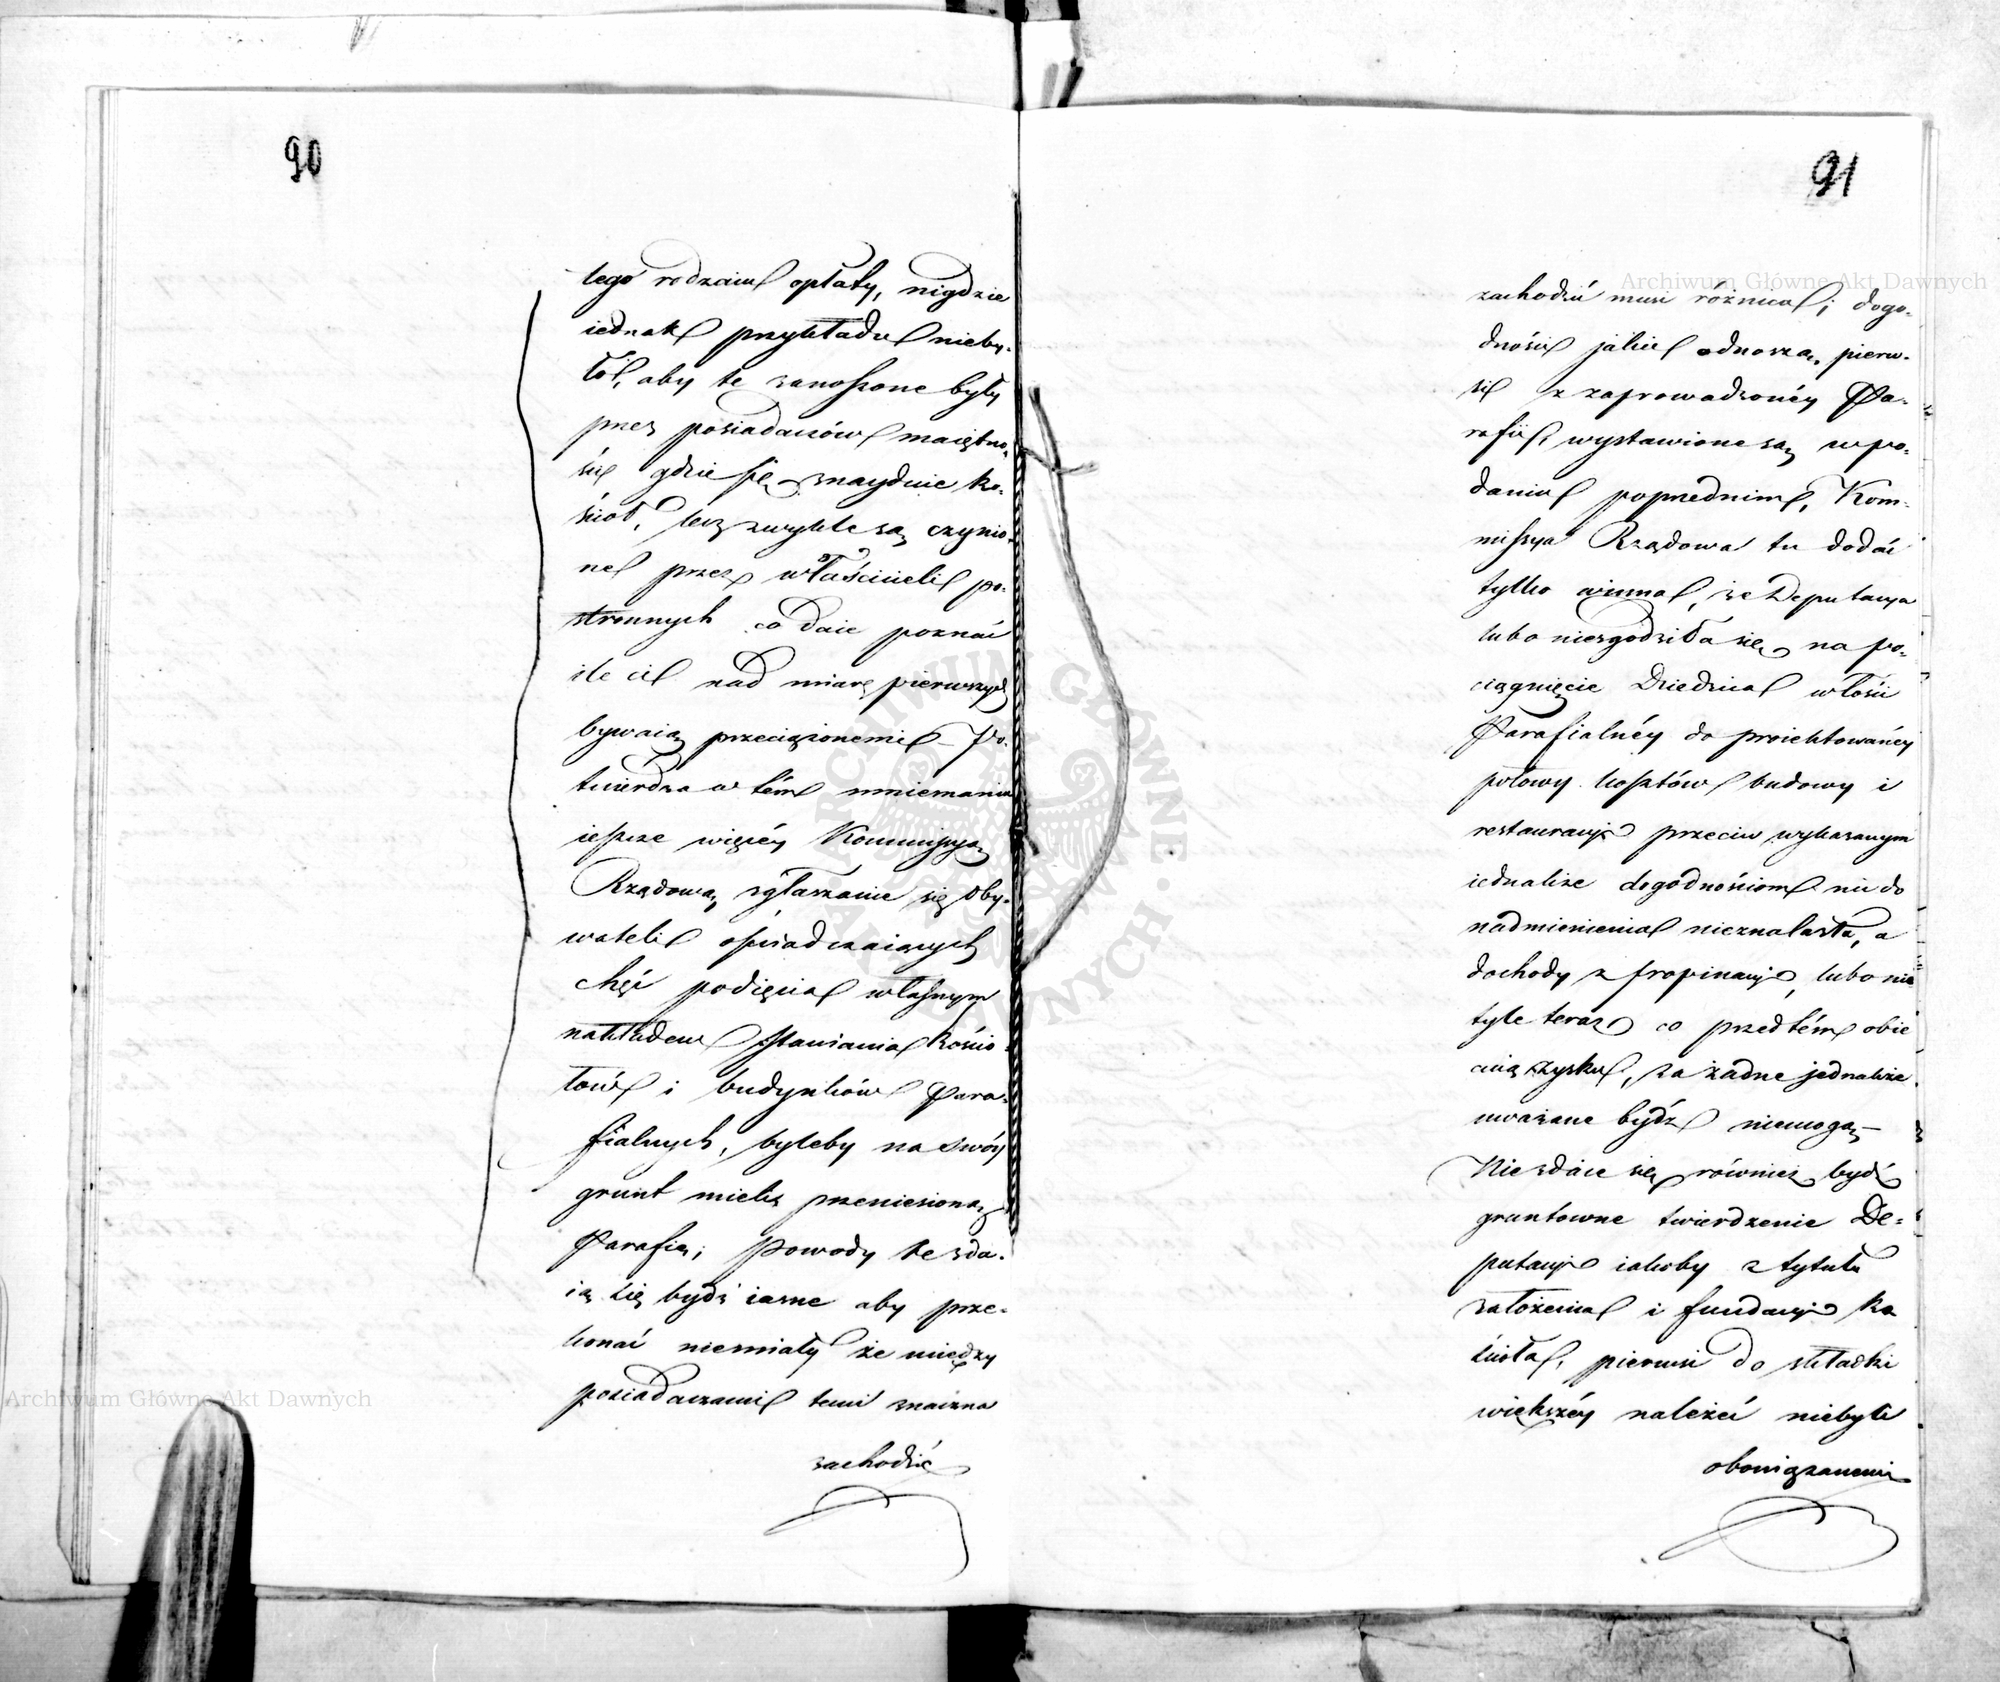 90
tego rodzaiu opłaty, nigdzie
iednak przykładu nieby-
ło, aby te zanoszone były
przez posiadaczów maiętno-
ści gdzie się znayduie ko-
ścioł, lecz zwykle są czynio-
ne przez właścicieli po-
stronnych co daie poznać
ile ci nad miarę pierwszych
bywaią przeciążonemi – Po-
twierdza w tém mniemaniu
ieszcze więcéy Kommissyą
Rządową zgłaszanie się Oby-
wateli oświadczaiących
chęć podięcia własnym
nakładem stawiania Kościo-
łów i budynków Para-
fialnych, byleby na swóy
grunt mieli przeniesioną
Parafią; Powody te zda-
ią się bydź iasne aby prze-
konać niemiały że między
posiadaczami temi znaczna
zachodzić
91
zachodzić musi różnica; dogo-
dności jakie odnoszą, pierw-
si z zaprowadzonéy Pa-
rafii, wystawione są w po-
daniu poprzednim, Kom-
missya Rządowa tu dodać
tylko winna, że Deputacya
lubo niezgodziła się na po-
ciągnięcie Dziedzica włości
Parafialnéy do proiektowanéy
połowy kosztów budowy i
restauracyi przeciw wykazanym
iednakże dogodnościom nic do
nadmienienia nieznalazła, a
dochody z propinacyi, lubo nie
tyle teraz co przedtém obie
cuią zysku, za żadne jednakże
uważane bydź niemogą –
Nie zdaie się również bydź
gruntowne twierdzenie De-
putacyi iakoby z tytułu
założenia i fundacyi Ko
ścioła, pierwsi do składki
większéy należeć niebyli
obowiązanemi
Archiwum Główne Akt Dawnych
Archiwum Główne Akt Dawnych
ARCHIWUM GŁÓWNE AKT DAWNYCH